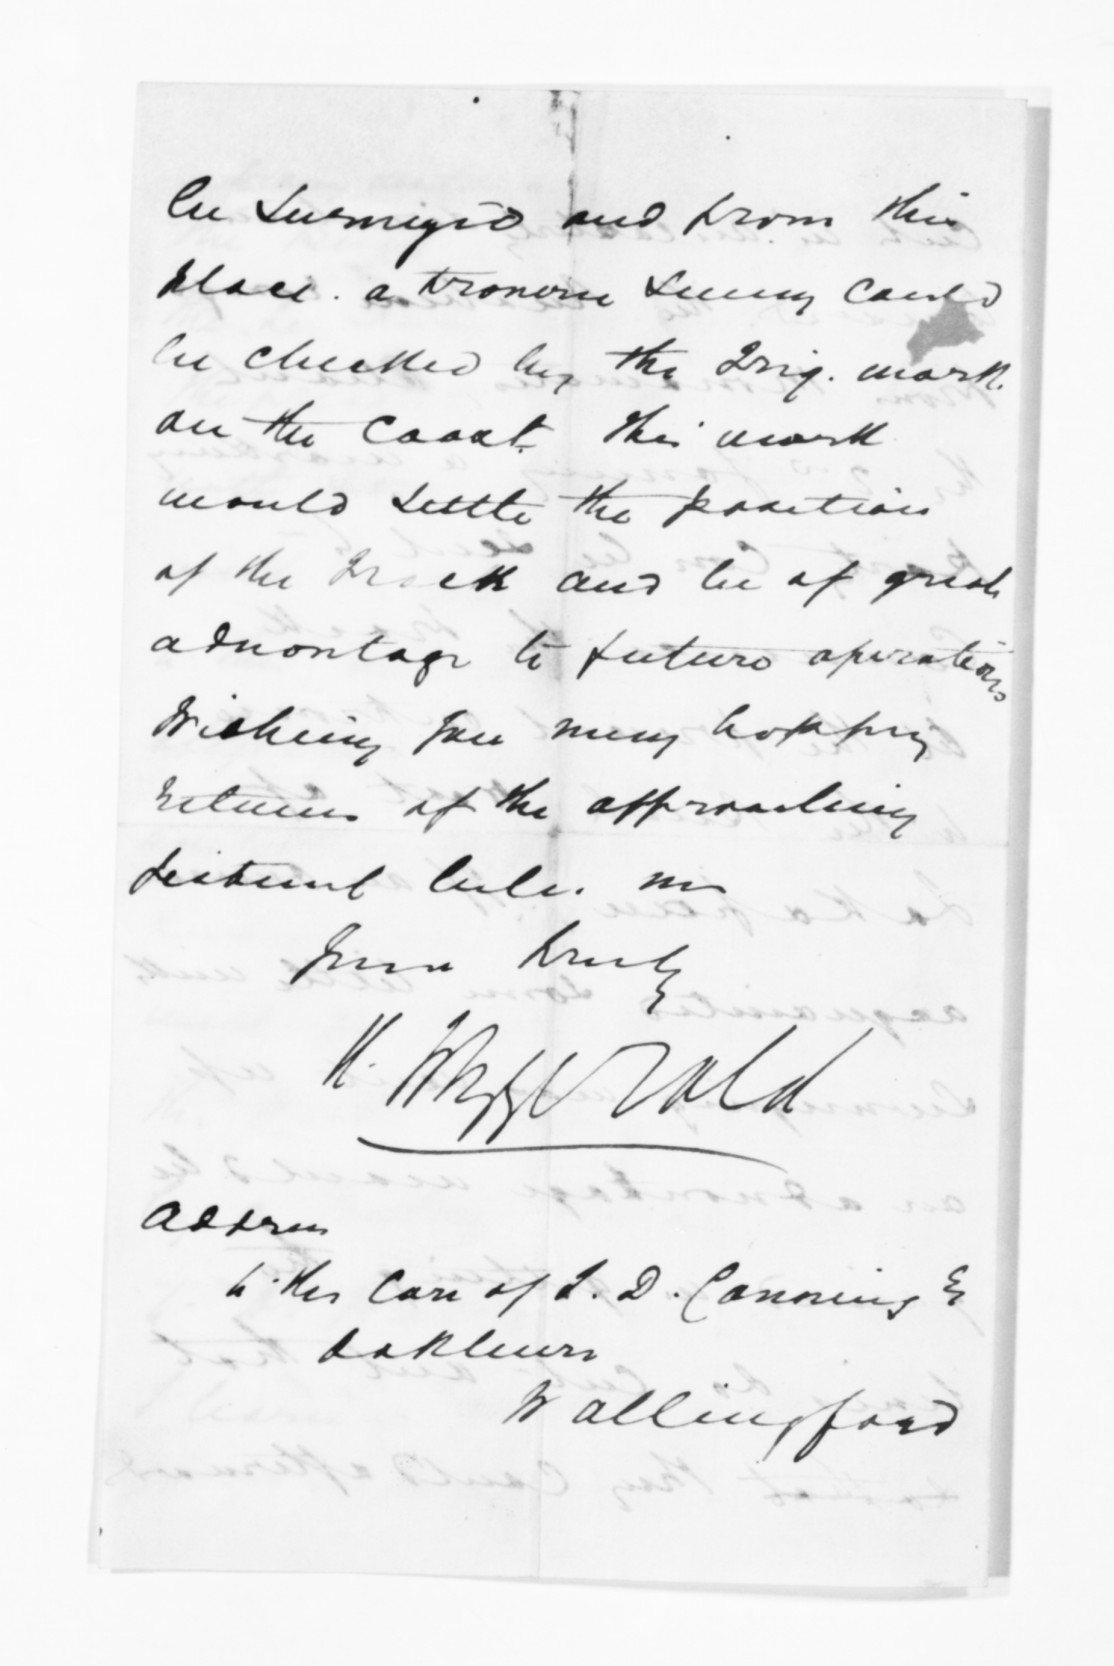 be surveyed and from this
place. a traverse survey could
be checked by the Trig. mark.
on the Coast. this work
would settle the position
of the Track and be of great
advantage to future operations
Wishing you many happy
returns of the approaching
festival
Yours truly
Fitzgerald
Address
to the Care of J. D. Canning Esq
Oakbourne
Wallingford